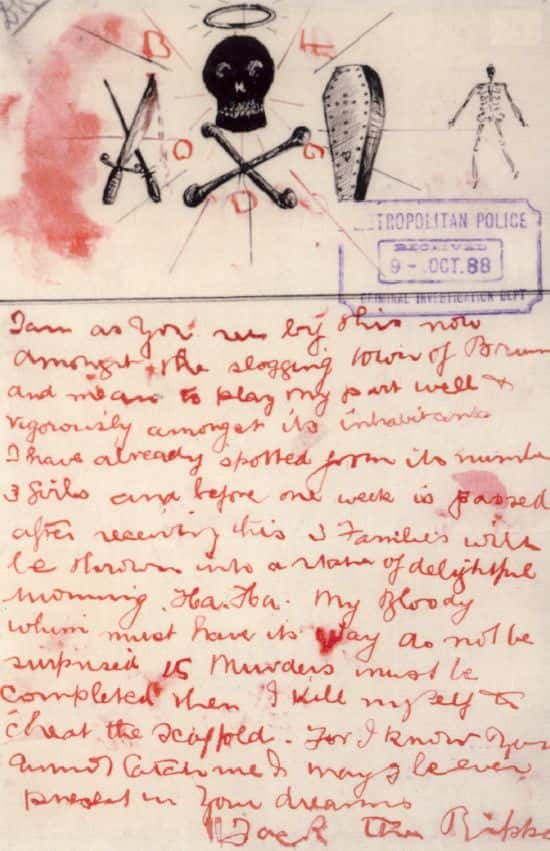 B F
O G
D
METROPOLITAN POLICE
RECEIVED
9 - OCT. 88
CRIMINAL INVESTIGATION DEPT
I am as you see by this now
amongst the slogging town of Brum
and mean to play my part well &
vigorously amongst its inhabitants
I have already spotted from its number
3 Girls and before one week is passed
after receiving this 3 Families will
be thrown into a state of delightful
mourning. Ha. Ha. My Bloody
whim must have its way do not be
surprised 15 Murders must be
completed then I kill myself to
cheat the scaffold. For I know you
cannot catch me & may I be ever
present in your dreams
Jack The Ripper